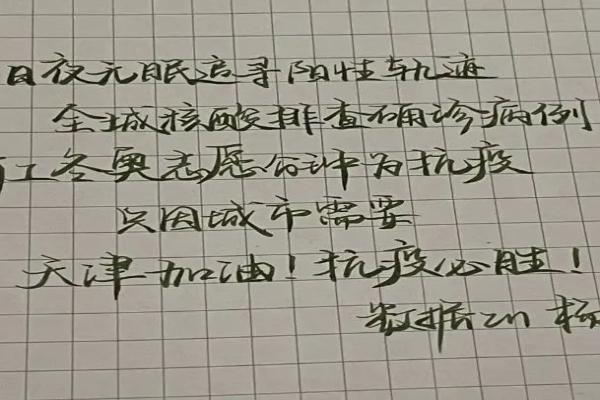 日夜无眠追寻阳性轨迹
全城核酸排查确诊病例
冬奥志愿 中为抗疫
只因城市需要
天津加油！抗疫必胜！
数据 杨